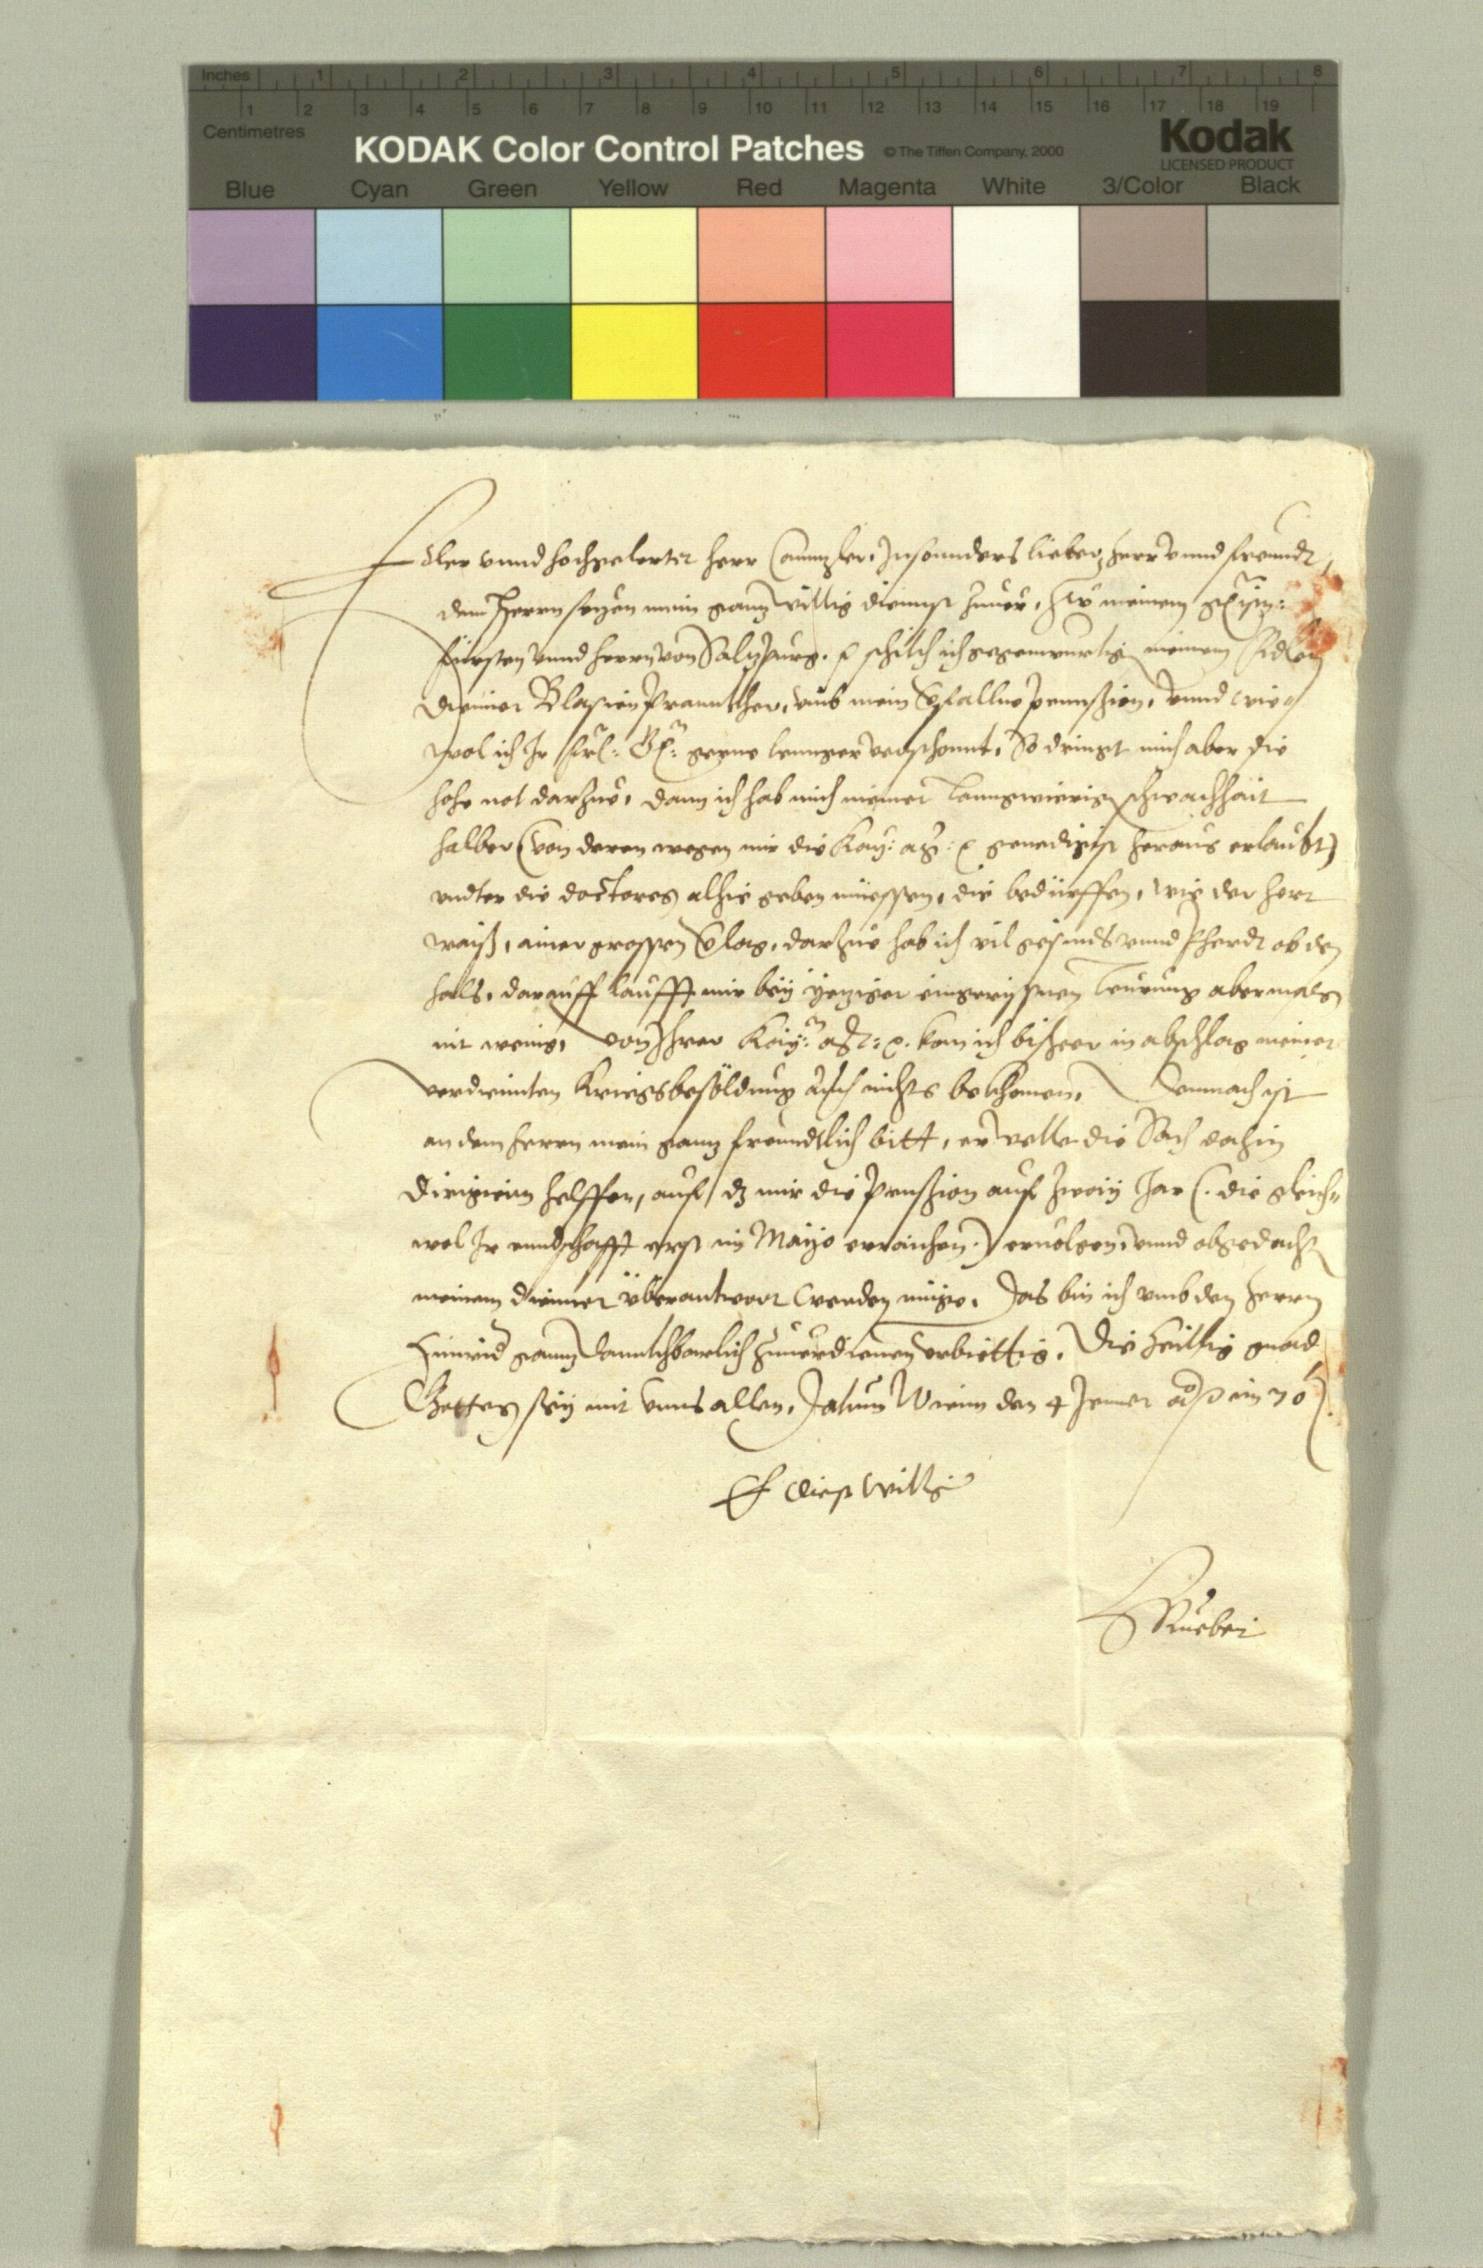 Inches 1 2 3 4 5 6 7 8
1 2 3 4 5 6 7 8 9 10 11 12 13 14 15 16 17 18 19
Centimetres
KODAK Color Control Patches © The Tiffen Company, 2000 Kodak
LICENSED PRODUCT
Blue Cyan Green Yellow Red Magenta White 3/Color Black
Edler vnnd hochgelerter herr Canntzler, Insonnders lieber herr vnnd freundt,
dem Herrn seyen mein gantz willig diennst zuuor, Hie meinem
Fürsten vnnd herrn von Saltzburg. schickh ich gegenwurtig meinem
diener Blasien Prannther, vmb mein Pennssion, vnnd wie
wol ich Ir Frl: Gn: gerne lennger verschonnt, So dringt mich aber die
hohe not darzue, dann ich hab mich meiner lanngwierig schwachhait
halber (von deren wegen mir die Kay: Mt: genedigist heraus erlaubt)
vndter die doctores alhie geben müessen, die bedürffen, wie der herr
waiß, ainer grossen darzue hab ich vil gesinds vnnd Pherdt ob dem
hals, darauff laufft mir bey yetziger eingerissnen Teurung abermals
nit wenig, von Ihrer Kay: Mt: kan ich bisheer in abschlag meiner
verdiennten Kriegsbesöldung auch nichts bekhomen, Demnach ist
an dem herrn mein gantz freundtlich bitt, er welle die Sach dahin
dirigieren helffen, auf dz mir die Penssion auf zway Jar (. die gleich¬
wol Ir erst im Mayo erraichen.) eruolgen, vnnd obgedacht
meinem diener überantwort werden müge. Das bin ich vmb den herrn
hinwid ganntz dannckhbarlich zuuerdienen erbiettig. Die heillig gnad
Gottes sey mit vnns allen, Datum Wienn den 4 Jenner im 76
E dienstwillig
HRueber